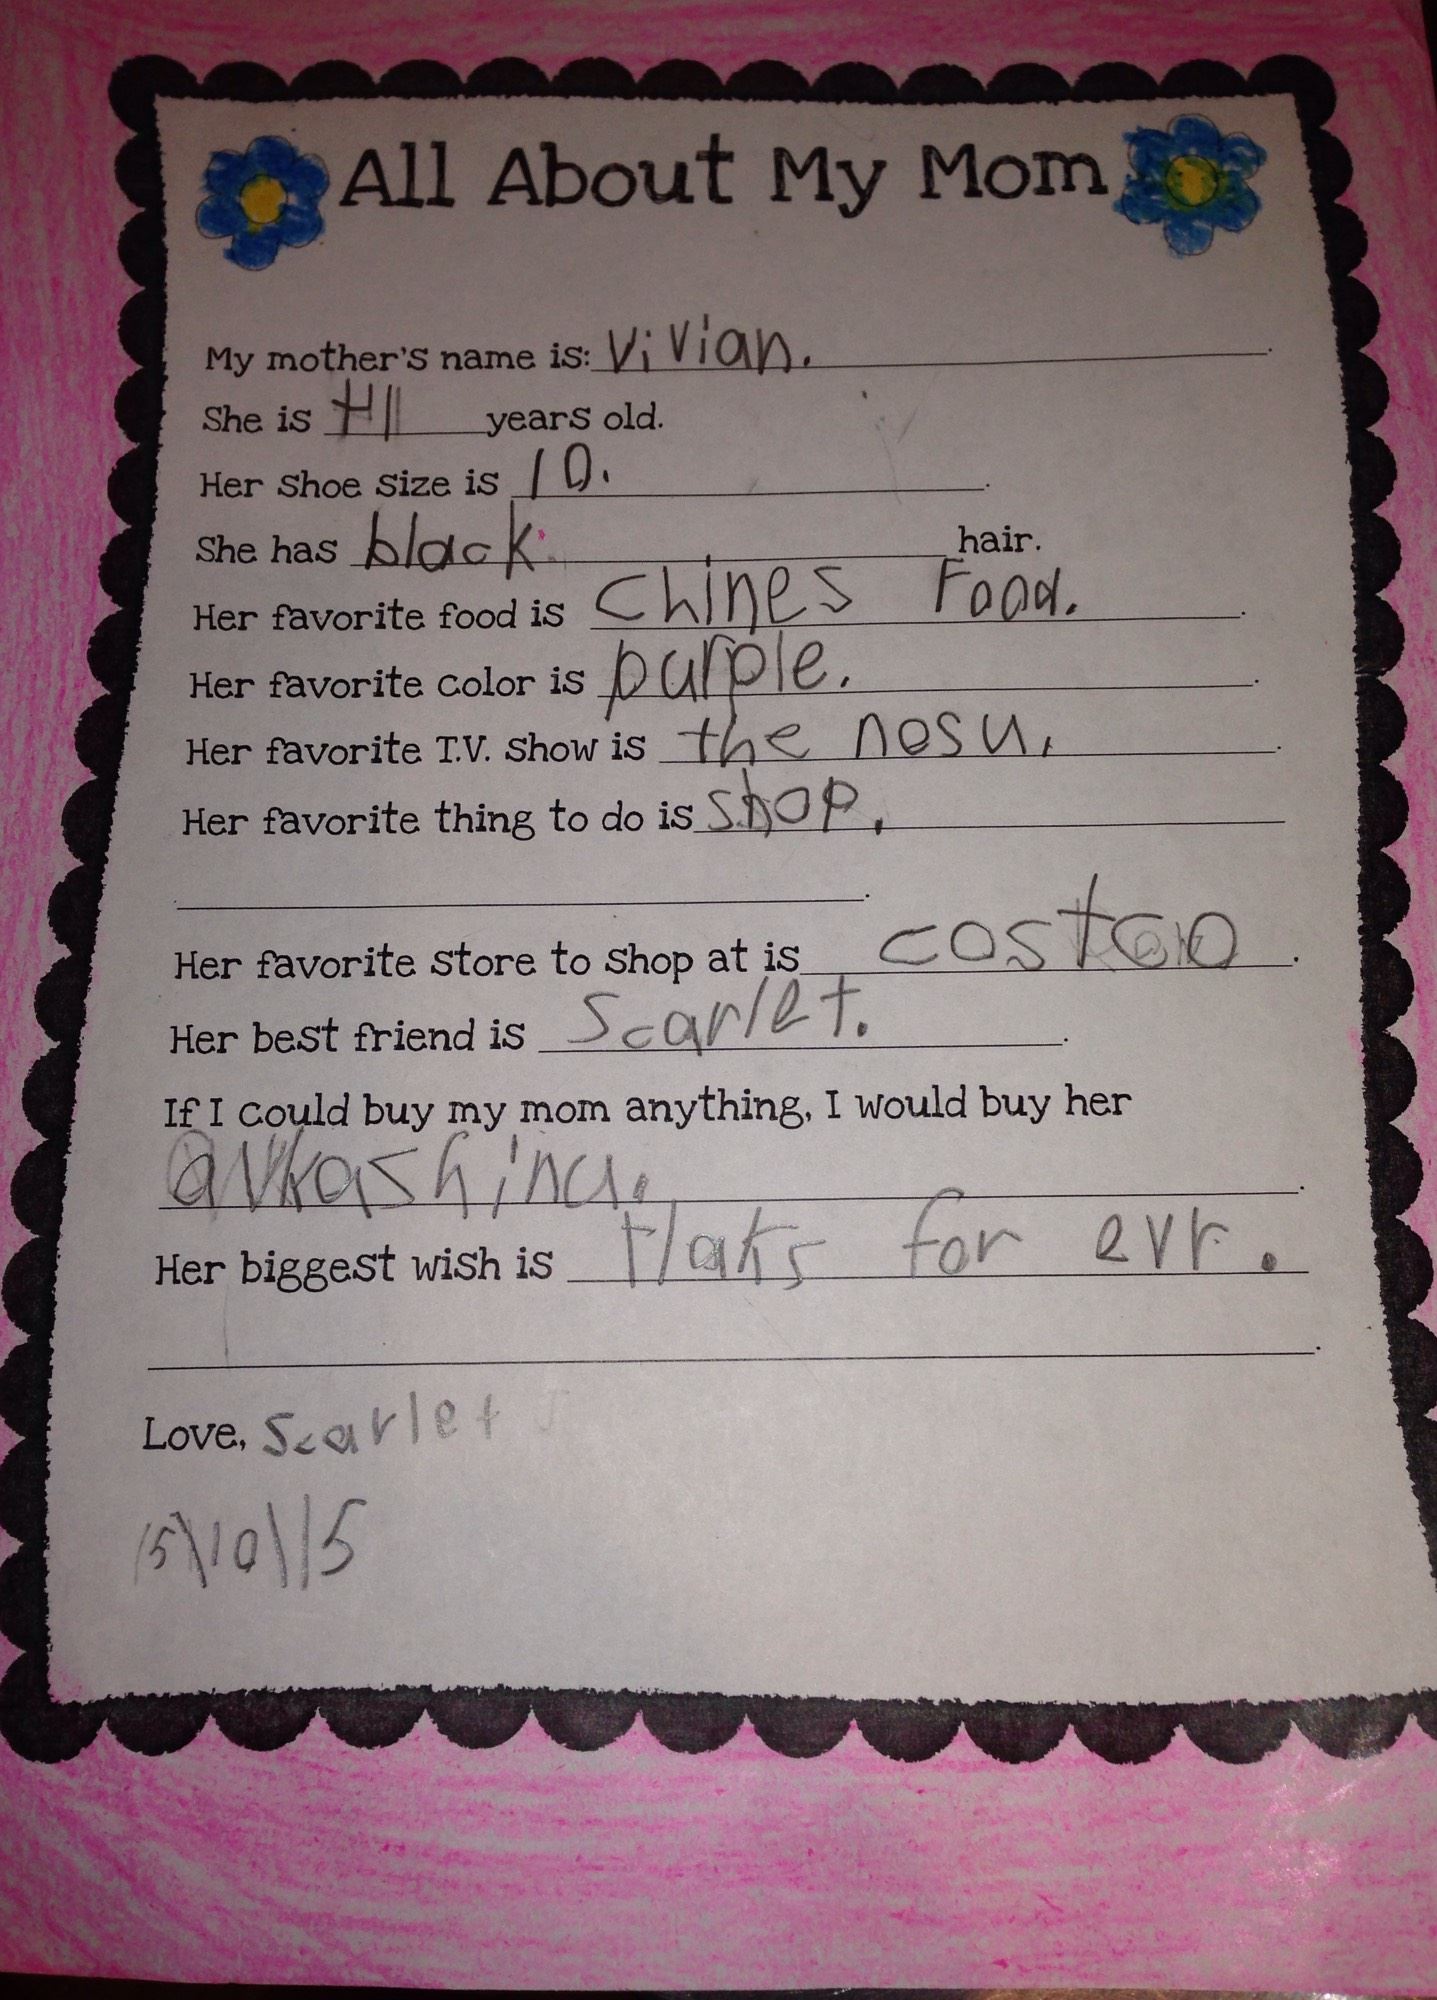 All About My Mom
My mother's name is: Vivian.
She is 41 years old.
Her shoe size is 10.
She has black. hair.
Her favorite food is Chines Food.
Her favorite color is purple.
Her favorite T.V. show is the nesu.
Her favorite thing to do is shop.
Her favorite store to shop at is costco.
Her best friend is Scarlet.
If I could buy my mom anything, I would buy her
avkashinu.
Her biggest wish is for evr.
Love, Scarlet
15\10\15